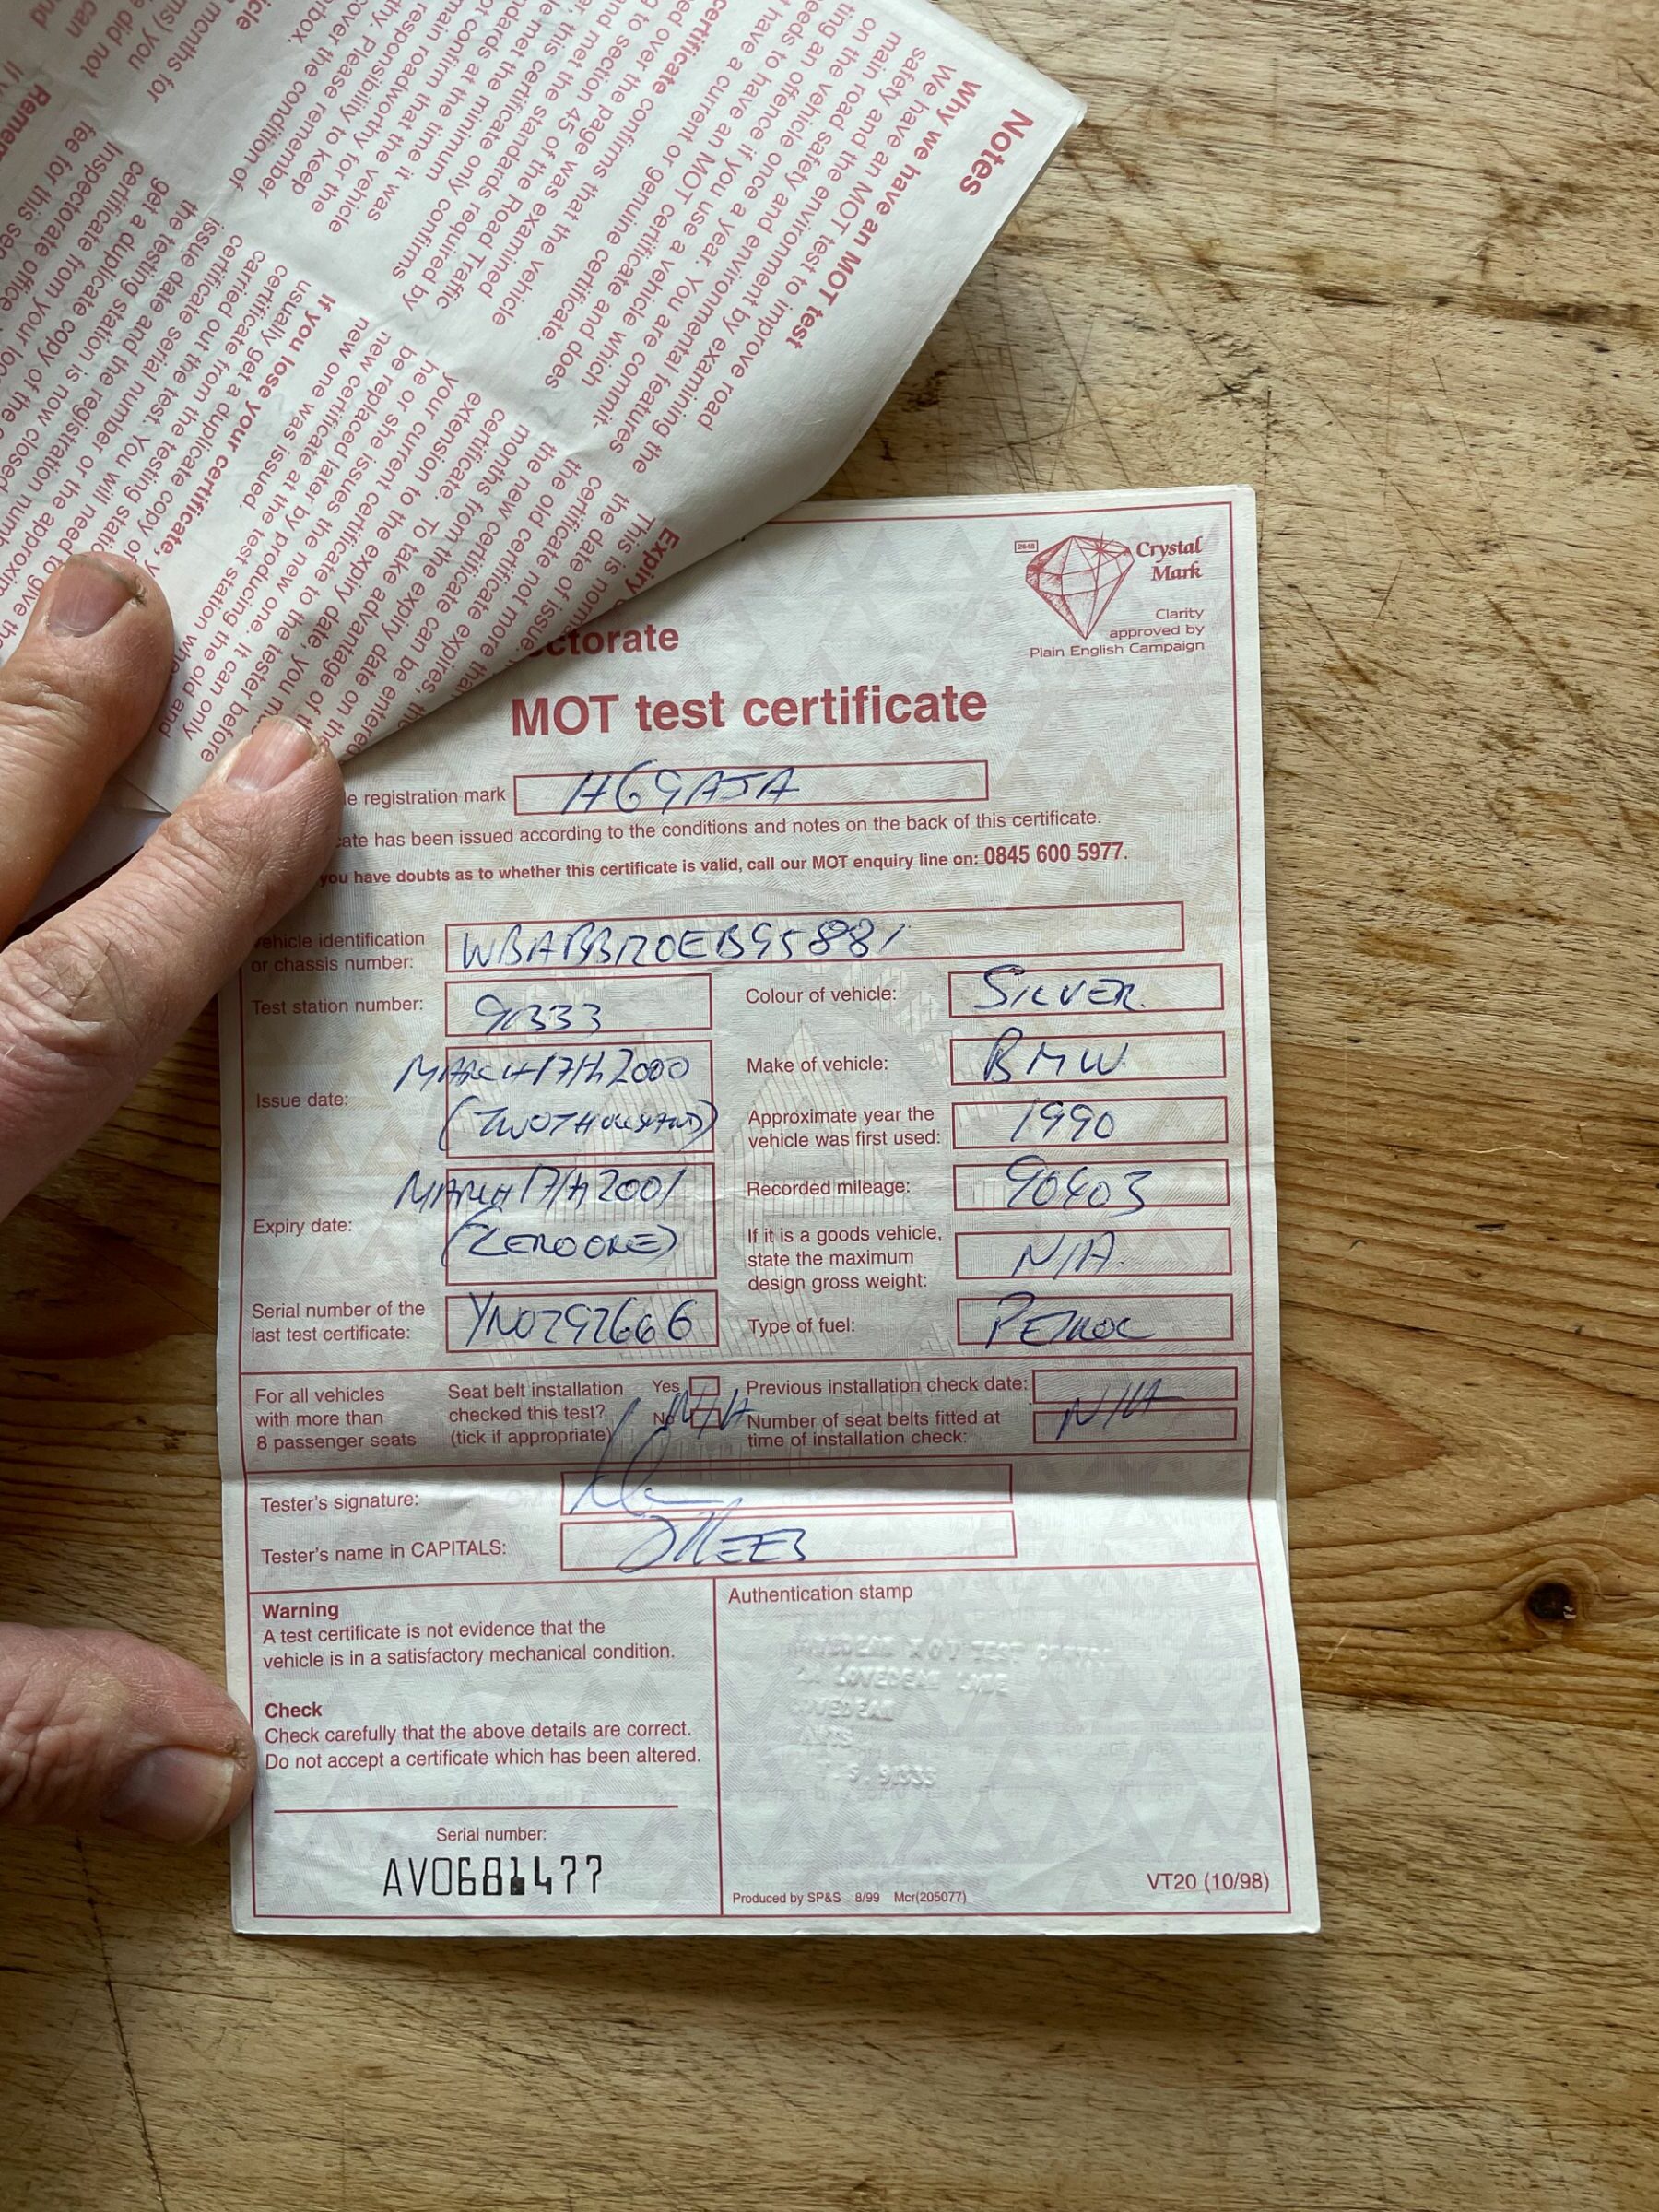 Notes
Why we have an MOT test
We have an MOT test to improve road
safety and the environment by examining the
main road safety and environmental features
on the vehicle once a year. You are commit-
ting an offence if you use a vehicle which
needs to have a current MOT certificate and does
not have a current or genuine certificate.
certificate confirms that the vehicle
over the page was examined
to section 45 of the Road Traffic
and met the standards required by
this certificate only confirms
met the minimum
standards at the time it was
not confirm that the vehicle
main roadworthy for the
responsibility to keep
Please remember
cover the condition of
months for
you
did not
can
Expiry
This is
the date of issue.
certificate not more than
the old certificate expires, the
the new certificate can be entered
months from the expiry date on the
certificate. To take advantage of
extension to the expiry date, you
your current certificate to the tester before
he or she issues the new one. It can only
be replaced later by producing the old and
new certificate at the test station where
new one was issued.
If you lose your certificate,
usually get a duplicate copy
certificate from the testing
carried out the test. You will need to give the
certificate serial number or the
issue date and the registration number
the testing station is now closed
get a duplicate copy of the
certificate from your
Inspectorate office
fee for this
ctorate
2948
Crystal
Mark
Clarity
approved by
Plain English Campaign
MOT test certificate
le registration mark H69AJA
cate has been issued according to the conditions and notes on the back of this certificate.
you have doubts as to whether this certificate is valid, call our MOT enquiry line on: 0845 600 5977.
vehicle identification
or chassis number:
Test station number: 91333
Colour of vehicle: SILVER
Issue date: MARCH 17th 2000
(TWO THOUSAND)
Make of vehicle: BMW
Approximate year the
vehicle was first used: 1990
Expiry date: MARCH 17th 2001
(ZERO ONE)
Recorded mileage: 90403
If it is a goods vehicle,
state the maximum
design gross weight: N/A
Serial number of the
last test certificate:
Type of fuel: PETROL
For all vehicles
with more than
8 passenger seats
Seat belt installation
checked this test?
(tick if appropriate)
Yes
No
N/A
Previous installation check date:
Number of seat belts fitted at
time of installation check:
N/A
Tester's signature:
Tester's name in CAPITALS:
Warning
A test certificate is not evidence that the
vehicle is in a satisfactory mechanical condition.
Check
Check carefully that the above details are correct.
Do not accept a certificate which has been altered.
Serial number:
AV0681477
Authentication stamp
MOT TEST
LOVEDEAN LANE
LOVEDEAN
HANTS
91333
Produced by SP&S 8/99 Mcr(205077)
VT20 (10/98)